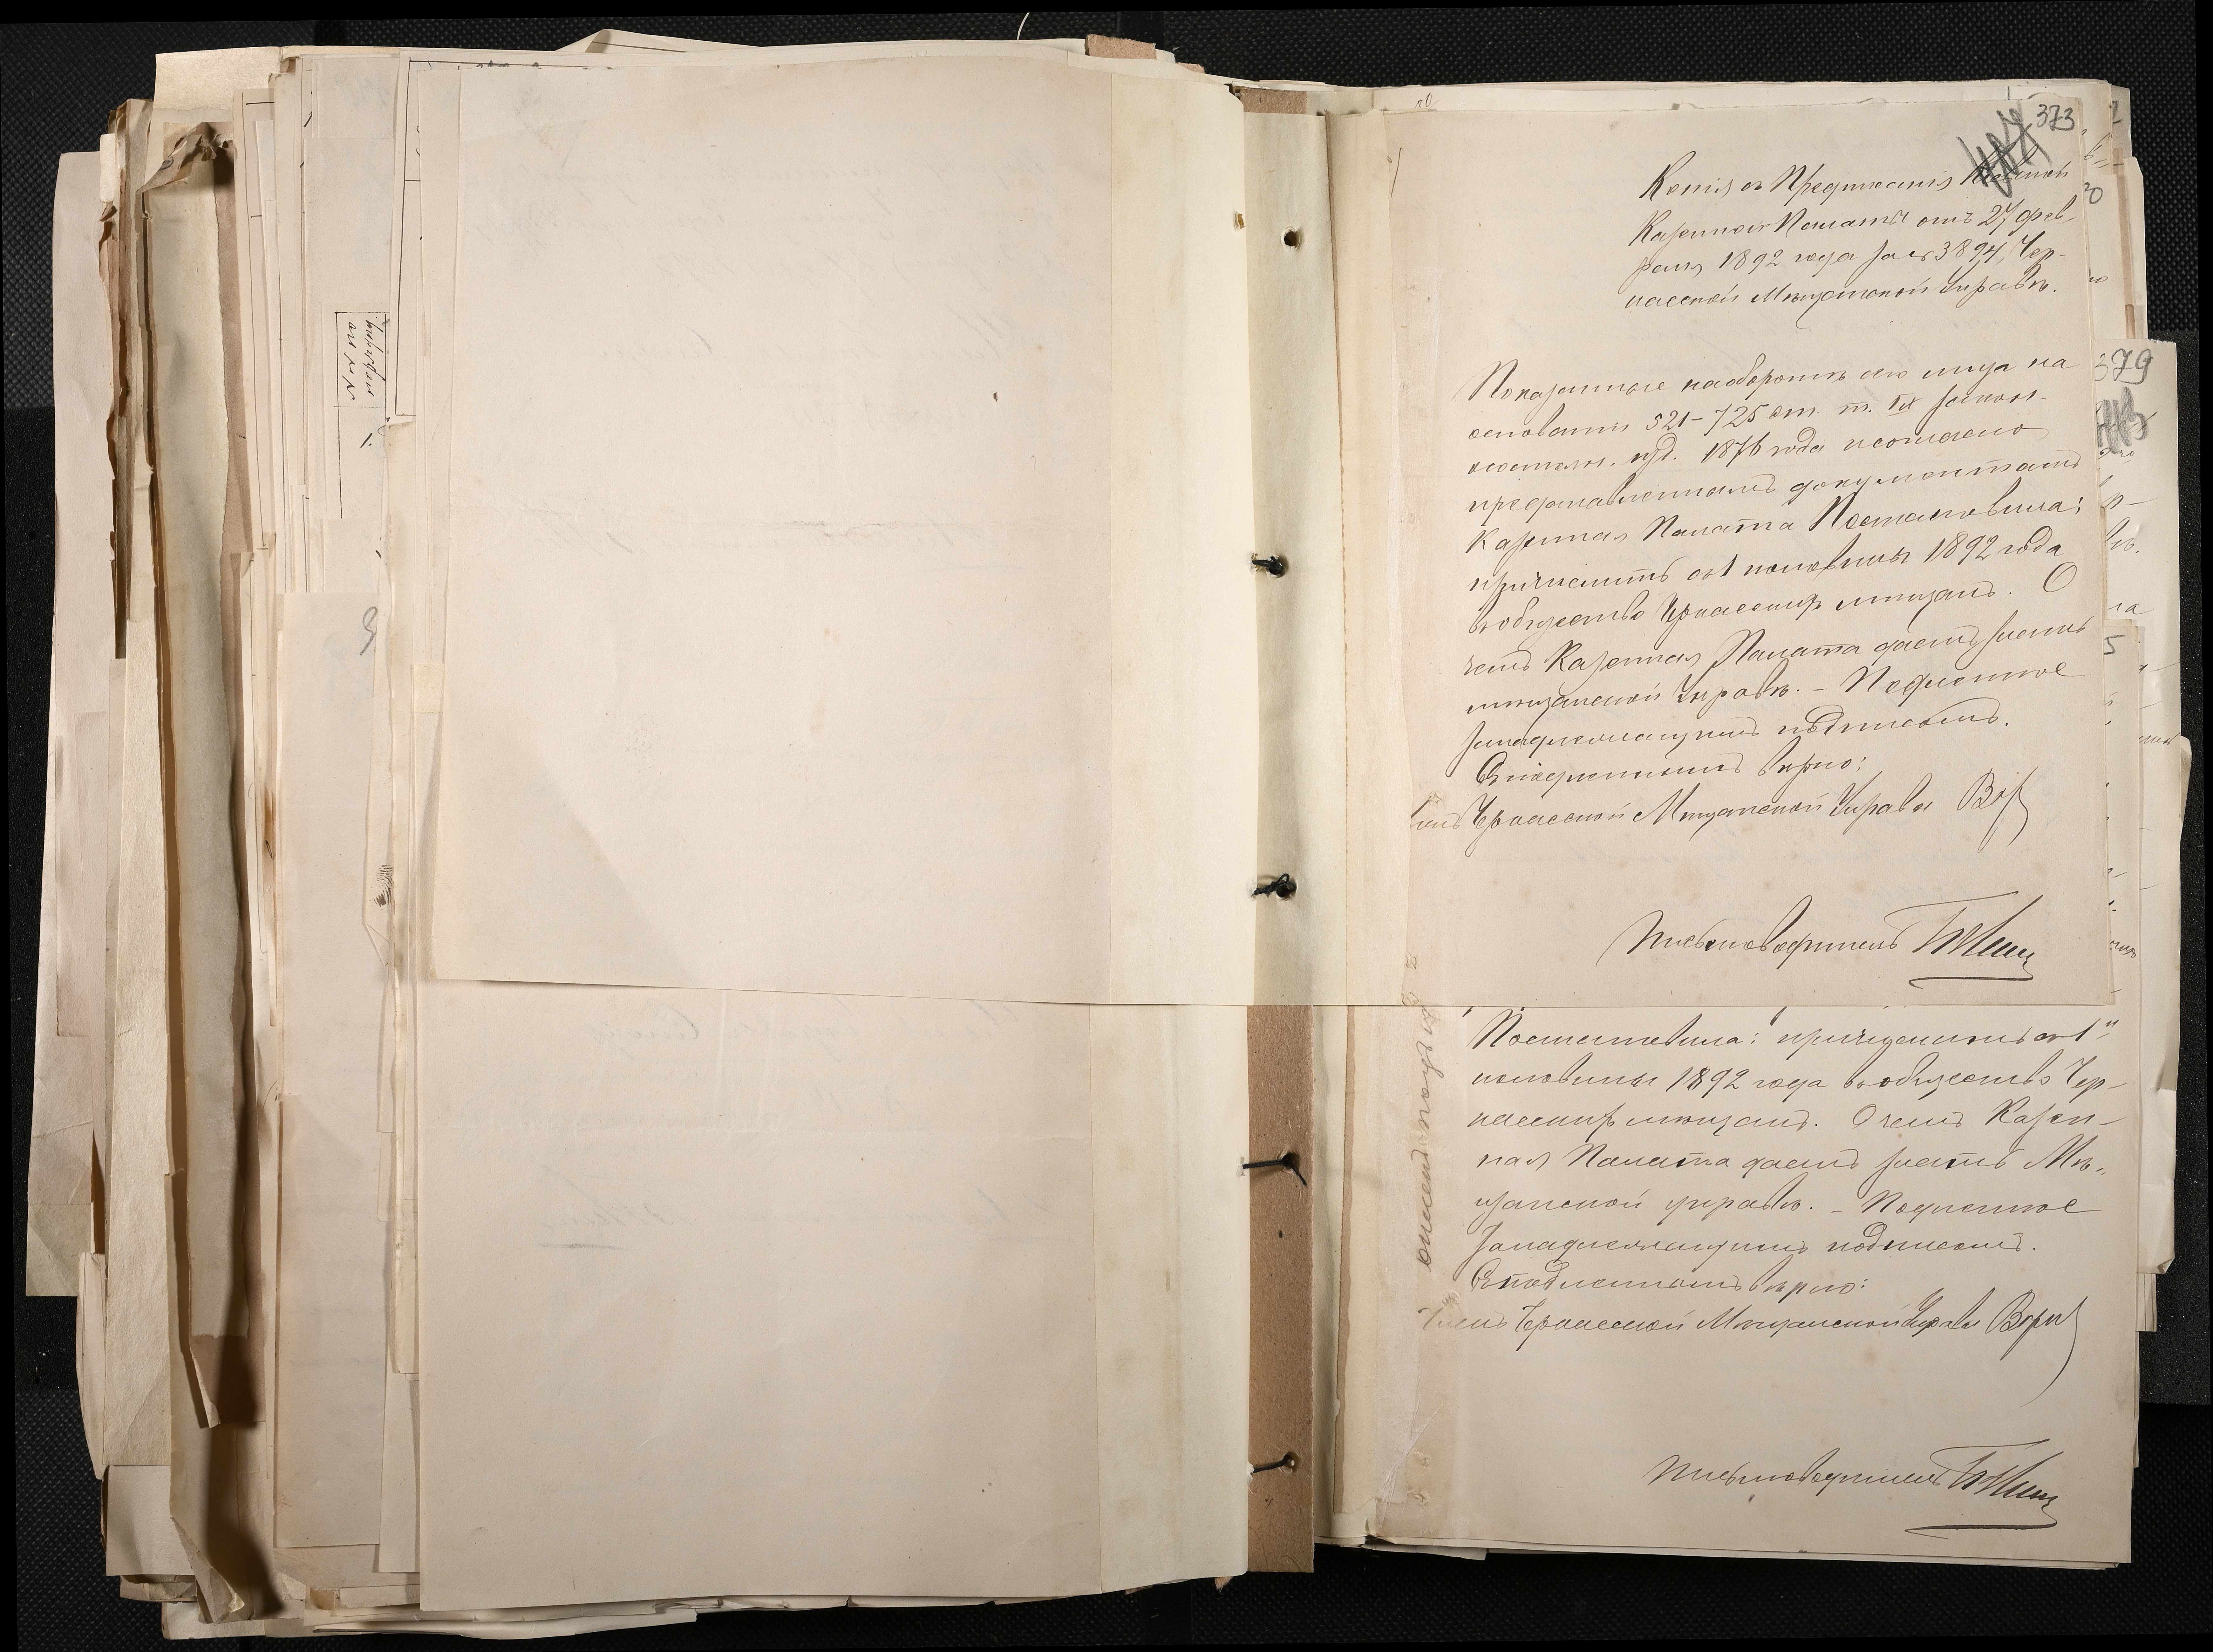 373
Копія съ Предписанія Кіевской
Казенной Палаты отъ 27 фев-
раля 1892 года за № 3894, Чер-
касской Мѣщанской Управѣ.
Показанные на оборотѣ сего лица на
основаніи 521-725 ст. т. IX закон.
о состоян. изд. 1876 года и согласно
представленнымъ документамъ
Казенная Палата Постановила:
причислить съ 1 половины 1892 года
въ общество Черкасскихъ мѣщанъ. О
чемъ Казенная Палата даетъ знать
мѣщанской Управѣ. - Подлинное
за надлежащимъ подписомъ.
Съ подлиннымъ вѣрно:
Членъ Черкасской Мѣщанской Управы
Письмоводитель
379
5
Постановила: причислить съ 1й
половины 1892 года въ общество Чер-
касскихъ мѣщанъ. О чемъ Казен-
ная Палата даетъ знать Мѣ-
щанской управѣ. - Подлинное
за надлежащимъ подписомъ.
Съ подлиннымъ вѣрно:
Членъ Черкасской Мѣщанской Управы
Письмоводитель